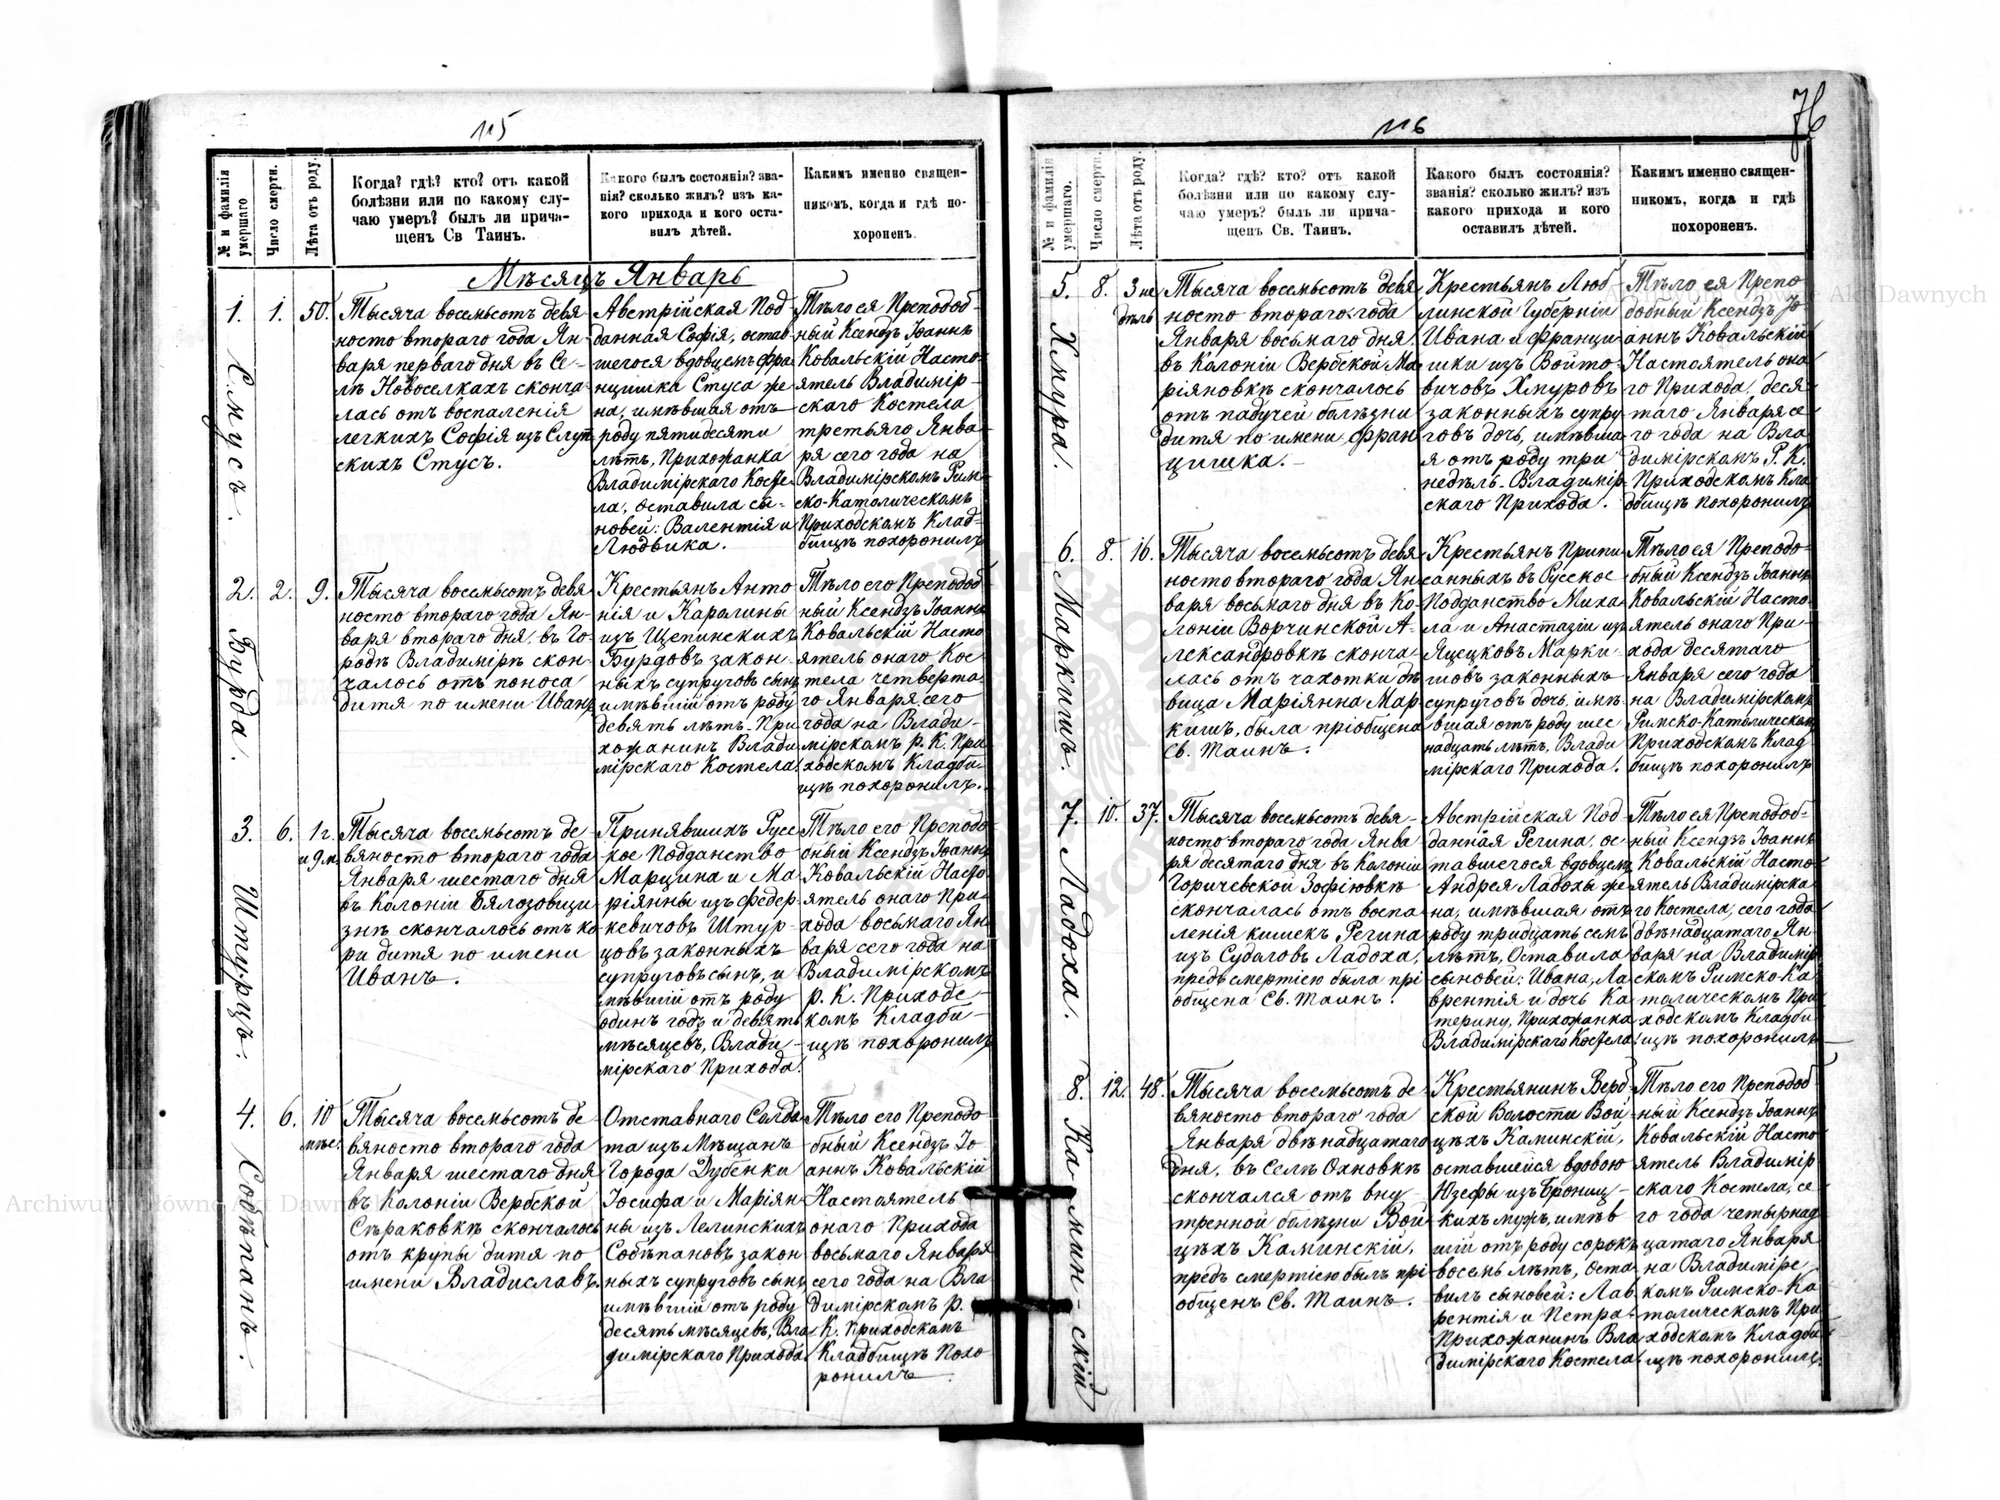 115
№ и фамилія умершаго.
Число смерти.
Лѣта отъ роду.
Когда? гдѣ? кто? отъ какой
болѣзни или по какому слу-
чаю умеръ? былъ ли прича-
щенъ Св Таинъ.
Какого былъ состоянія? зва-
нія? сколько жилъ? изъ ка-
кого прихода и кого оста-
вилъ дѣтей.
Какимъ именно священ-
никомъ, когда и гдѣ по-
хороненъ.
Мѣсяцъ Январь
1.
Стусъ.
1.
50.
Тысяча восемьсотъ девя
носто втораго года Ян-
варя перваго дня въ Се-
лѣ Новоселкахъ сконча-
лась отъ воспаленія
легкихъ Софія изъ
скихъ Стусъ.
Австрійская Под
данная Софія, остав-
шегося вдовцемъ Фра
нцишка Стуса же
на, имѣвшая отъ
роду пятидесяти
лѣтъ, Прихожанка
Владимірскаго Косте
ла, оставила сы-
новей: Валентія и
Людвика.
Тѣло ея Преподоб-
ный Ксендзъ Іоаннъ
Ковальскій Насто-
ятель Владимір-
скаго Костела
третьяго Янва-
ря сего года на
Владимірскомъ Рим-
ско-Католическомъ
Приходскомъ Клад-
бищѣ похоронилъ
2.
Бурда.
2.
9.
Тысяча восемьсотъ девя
носто втораго года Ян-
варя втораго дня въ Го-
родѣ Владимірѣ скон-
чалось отъ поноса
дитя по имени Иванъ
Крестьянъ Анто
нія и Каролины
изъ Щепинскихъ
Бурдовъ закон-
ныхъ супруговъ сынъ
имѣвшій отъ роду
девять лѣтъ. При
хожанинъ Влади
мірскаго Костела.
Тѣло его Преподоб
ный Ксендзъ Іоаннъ
Ковальскій Насто
ятель онаго Кос
тела четверта-
го Января сего
года на Влади-
мірскомъ р. К. При
ходскомъ Кладби-
щѣ похоронилъ.
3.
Штурцъ.
6.
1 г.
и 9 м.
Тысяча восемьсотъ де-
вяносто втораго года
Января шестаго дня
въ Колоніи Бялозовщи
знѣ скончалось отъ ко
ри дитя по имени
Иванъ.
Принявшихъ Русс
кое Подданство
Марцина и Ма
ріянны изъ Федер-
кевичовъ Штур-
цовъ законныхъ
супруговъ сынъ, и
мѣвшій отъ роду
одинъ годъ и девять
мѣсяцевъ, Влади-
мірскаго Прихода.
Тѣло его Преподо-
бный Ксендзъ Іоаннъ
Ковальскій Насто-
ятель онаго При-
хода восьмаго Ян
варя сего года на
Владимірскомъ
р. К. Приходс-
комъ Кладби-
щѣ похоронилъ
4.
Собѣпанъ.
6.
10
мѣс.
Тысяча восемьсотъ де
вяносто втораго года
Января шестаго дня
въ Колоніи Вербской
Сѣраковкѣ скончалось
отъ крупы дитя по
имени Владиславъ.
Отставнаго Солда
та изъ Мѣщанъ
Города Дубенки
Іосифа и Маріян-
ны изъ Лелинскихъ
Собѣпановъ закон
ныхъ супруговъ сынъ
имѣвшій отъ роду
десять мѣсяцевъ, Вла-
димірскаго Прихода.
Тѣло его Преподо
бный Ксендзъ Іо
аннъ Ковальскій
Настоятель
онаго Прихода
восьмаго Января
сего года на Вла
димірскомъ р.
К. Приходскомъ
Кладбищѣ Похо-
ронилъ
116
76
№ и фамилія умершаго.
Число смерти.
Лѣта отъ роду.
Когда? гдѣ? кто? отъ какой
болѣзни или по какому слу-
чаю умеръ? былъ ли прича-
щенъ Св. Таинъ.
Какого былъ состоянія?
званія? сколько жилъ? изъ
какого прихода и кого
оставилъ дѣтей.
Какимъ именно священ-
никомъ, когда и гдѣ
похороненъ.
5.
Хмура.
8.
3 не
дѣль
Тысяча восемьсотъ девя
носто втораго года
Января восьмаго дня
въ Колоніи Вербской Ма
ріяновкѣ скончалось
отъ падучей болѣзни
дитя по имени Фран
цишка.
Крестьянъ Люб-
линской Губерніи
Ивана и Францы
шки изъ Войто
вичовъ Хмуровъ
законныхъ супру
говъ дочь, имѣвша-
я отъ роду три
недѣль. Владимір-
скаго Прихода.
Тѣло ея Препо
добный Ксендзъ Іо
аннъ Ковальскій
Настоятель она
го Прихода деся
таго Января се
го года на Вла
димірскомъ Р. К.
Приходскомъ Кла
дбищѣ похоронилъ
6.
Маркишъ.
8.
16.
Тысяча восемьсотъ девя
носто втораго года Ян
варя восьмаго дня въ Ко
лоніи Ворчинской А-
лександровкѣ сконча
лась отъ чахотки дѣ
вица Маріянна Мар
кишъ, была пріобщена
Св. Таинъ.
Крестьянъ Припи
санныхъ въ Русское
Подданство Миха
ла и Анастазіи изъ
Яцецковъ Марки-
шовъ законныхъ
супруговъ дочь, имѣ-
вшая отъ роду шес
надцать лѣтъ, Влади
мірскаго Прихода.
Тѣло ея Преподо-
бный Ксендзъ Іоаннъ
Ковальскій Насто
ятель онаго При-
хода десятаго
Января сего года
на Владимірскомъ
Римско-Католическомъ
Приходскомъ Клад
бищѣ похоронилъ
7.
Ладоха.
10.
37.
Тысяча восемьсотъ девя-
носто втораго года Янва
ря десятаго дня въ Колоніи
Горичевской Зофіювкѣ
скончалась отъ воспа
ленія кишекъ Регина
изъ Судаговъ Ладоха,
предъ смертію была прі
общена Св. Таинъ.
Австрійская Под
данная Регина, ос-
тавшегося вдовцемъ
Андрея Ладохи же
на, имѣвшая отъ
роду тридцать семь
лѣтъ, Оставила
сыновей: Ивана, Ла
врентія и дочь Ка
терину, Прихожанка
Владимірскаго Костела
Тѣло ея Преподоб-
ный Ксендзъ Іоаннъ
Ковальскій Насто-
ятель Владимірска
го Костела, сего года
двѣнадцатаго Ян-
варя на Владимір
скомъ Римско-Ка-
толическомъ При
ходскомъ Кладби
щѣ похоронилъ
8.
Камин-скій
12.
48.
Тысяча восемьсотъ де-
вяносто втораго года
Января двѣнадцатаго
дня, въ Селѣ Охновкѣ
скончался отъ вну-
тренной болѣзни Вой
цѣхъ Каминскій,
предъ смертію былъ прі-
общенъ Св. Таинъ.
Крестьянинъ Верб
ской Волости Вой-
цѣхъ Каминскій,
оставшейся вдовою
Юзефы изъ Брониц-
кихъ мужъ, имѣв
шій отъ роду сорокъ
восемь лѣтъ, Оста-
вилъ сыновей: Лав
рентія и Петра.
Прихожанинъ Вла
димірскаго Костела.
Тѣло его Преподоб
ный Ксендзъ Іоаннъ
Ковальскій Насто
ятель Владимір
скаго Костела, се
го года четырнад
цатаго Января
на Владимірс-
комъ Римско-Ка
толическомъ При
ходскомъ Кладби
щѣ похоронилъ.
Archiwum Główne Akt Dawnych
Archiwum Główne Akt Dawnych